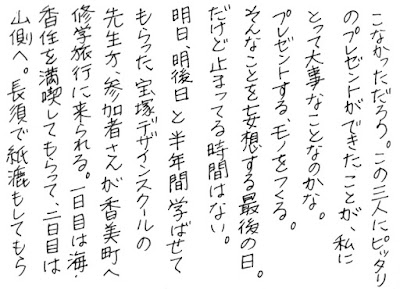 こなかっただろう。この三人にピッタリ
のプレゼントができたことが、私に
とって大事なことなのかな。
プレゼントする、モノをつくる。
そんなことを妄想する最後の日。
だけど止まってる時間はない。
明日、明後日と半年間学ばせて
もらった宝塚デザインスクールの
先生方、参加者さんが香美町へ
修学旅行に来られる。一日目は海・
香住を満喫してもらって、二日目は
山側へ。長須で紙漉もしてもら